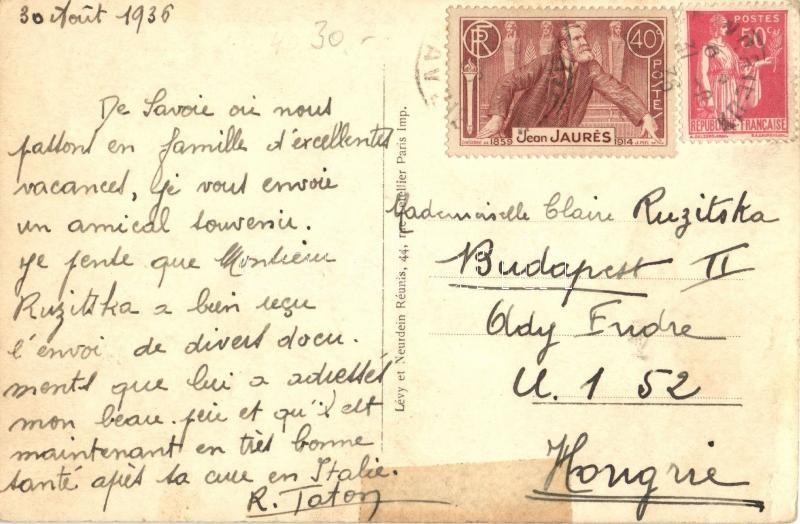 30 Août 1936
30.-
De Savoie où nous
passons en famille d'excellentes
vacances, je vous envoie
un amical souvenir.
Je pense que Monsieur
Ruzitska a bien reçu
l'envoi de divers docu-
ments que lui a adressés
mon beau-père et qu'il est
maintenant en très bonne
santé après sa cure en Italie.
R. Taton
Lévy et Neurdein Réunis, 44, rue Letellier Paris Imp.
RF
40c
POSTE
Jean JAURÈS
1859
1914
POSTES
50c
RÉPUBLIQUE FRANÇAISE
Mademoiselle Claire Ruzitska
Budapest II
Ady Endre
U. 1 52
Hongrie